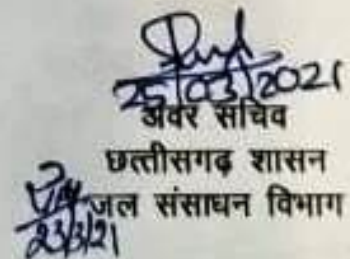 25/03/2021
अवर सचिव
छत्तीसगढ़ शासन
जल संसाधन विभाग
23/3/21